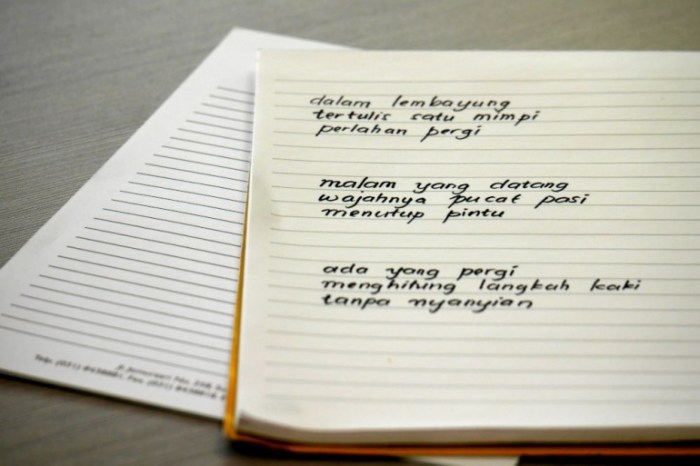 dalam lembayung
tertulis satu mimpi
perlahan pergi
malam yang datang
wajahnya pucat pasi
menutup pintu
ada yang pergi
menghitung langkah kaki
tanpa nyanyian